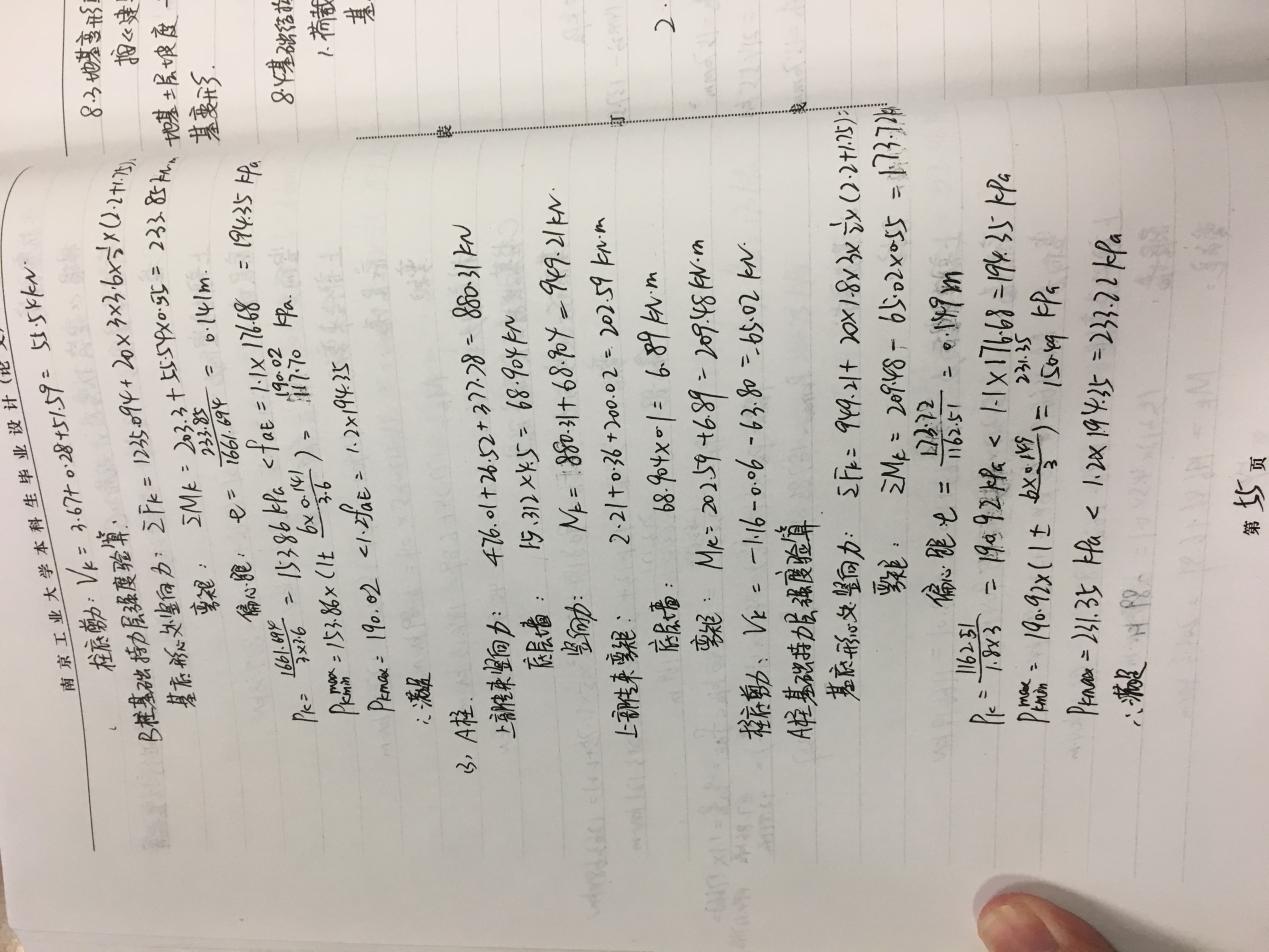 南京工业大学本科生毕业设计(论文)
柱底剪力: Vk = 3.67+0.28+51.59 = 55.54kN.
B柱基础持力层强度验算.
基底形心处竖向力: ΣFk = 1225.094 + 20×3×3.6×½×(2.2+1.75)
弯矩: ΣMk = 203.3 + 55.54×0.55 = 233.85 kN.m
偏心距: e = 233.85/1661.694 = 0.141m.
Pk = 1661.694/3×3.6 = 153.86 kPa < faE = 1.1×176.68 = 194.35 kPa
Pkmax kmin = 153.86×(1± 6×0.141/3.6) = 190.02 117.70 kPa.
Pkmax = 190.02 < 1.2faE = 1.2×194.35
∴满足
3, A柱.
上部传来竖向力: 476.01+26.52+377.78 = 880.31 kN
底层墙: 15.312×4.5 = 68.904 kN
竖向力: Nk = 880.31+68.904 = 949.21 kN.
上部传来弯矩: 2.21+0.36+200.02 = 202.59 kN.m
底层墙: 68.904×0.1 = 6.89 kN.m
弯矩: Mk = 202.59+6.89 = 209.48 kN.m
柱底剪力: Vk = -1.16-0.06-63.80 = -65.02 kN.
A柱基础持力层强度验算
基底形心处竖向力: ΣFk = 949.21 + 20×1.8×3×½×(2.2+1.75)=
弯矩: ΣMk = 209.48 - 65.02×0.55 = 173.72k
偏心距 e = 173.72/1162.51 = 0.149 m
Pk = 1162.51/1.8×3 = 190.92 kPa < 1.1×176.68 = 194.35 kPa
Pkmax kmin = 190.92×(1± 6×0.149/3) = 231.35 150.49 kPa
Pkmax = 231.35 kPa < 1.2×194.35 = 233.22 kPa
∴满足
第 55 页
装
订
线
8.3 地基变形
按《建
地基土层坡度
基变形.
8.4 基础结构
1. 荷载
基
2.